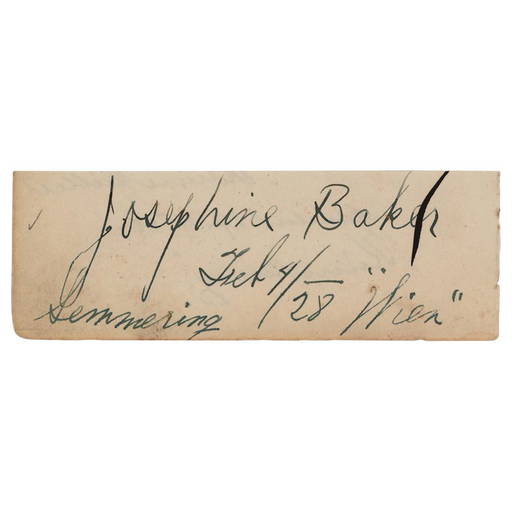 Josephine Baker
Feb 4/28 "Wien"
Semmering